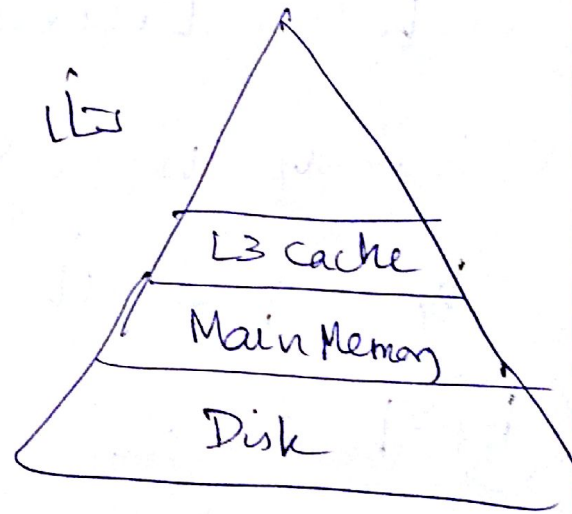 L3 cache
Main Memory
Disk